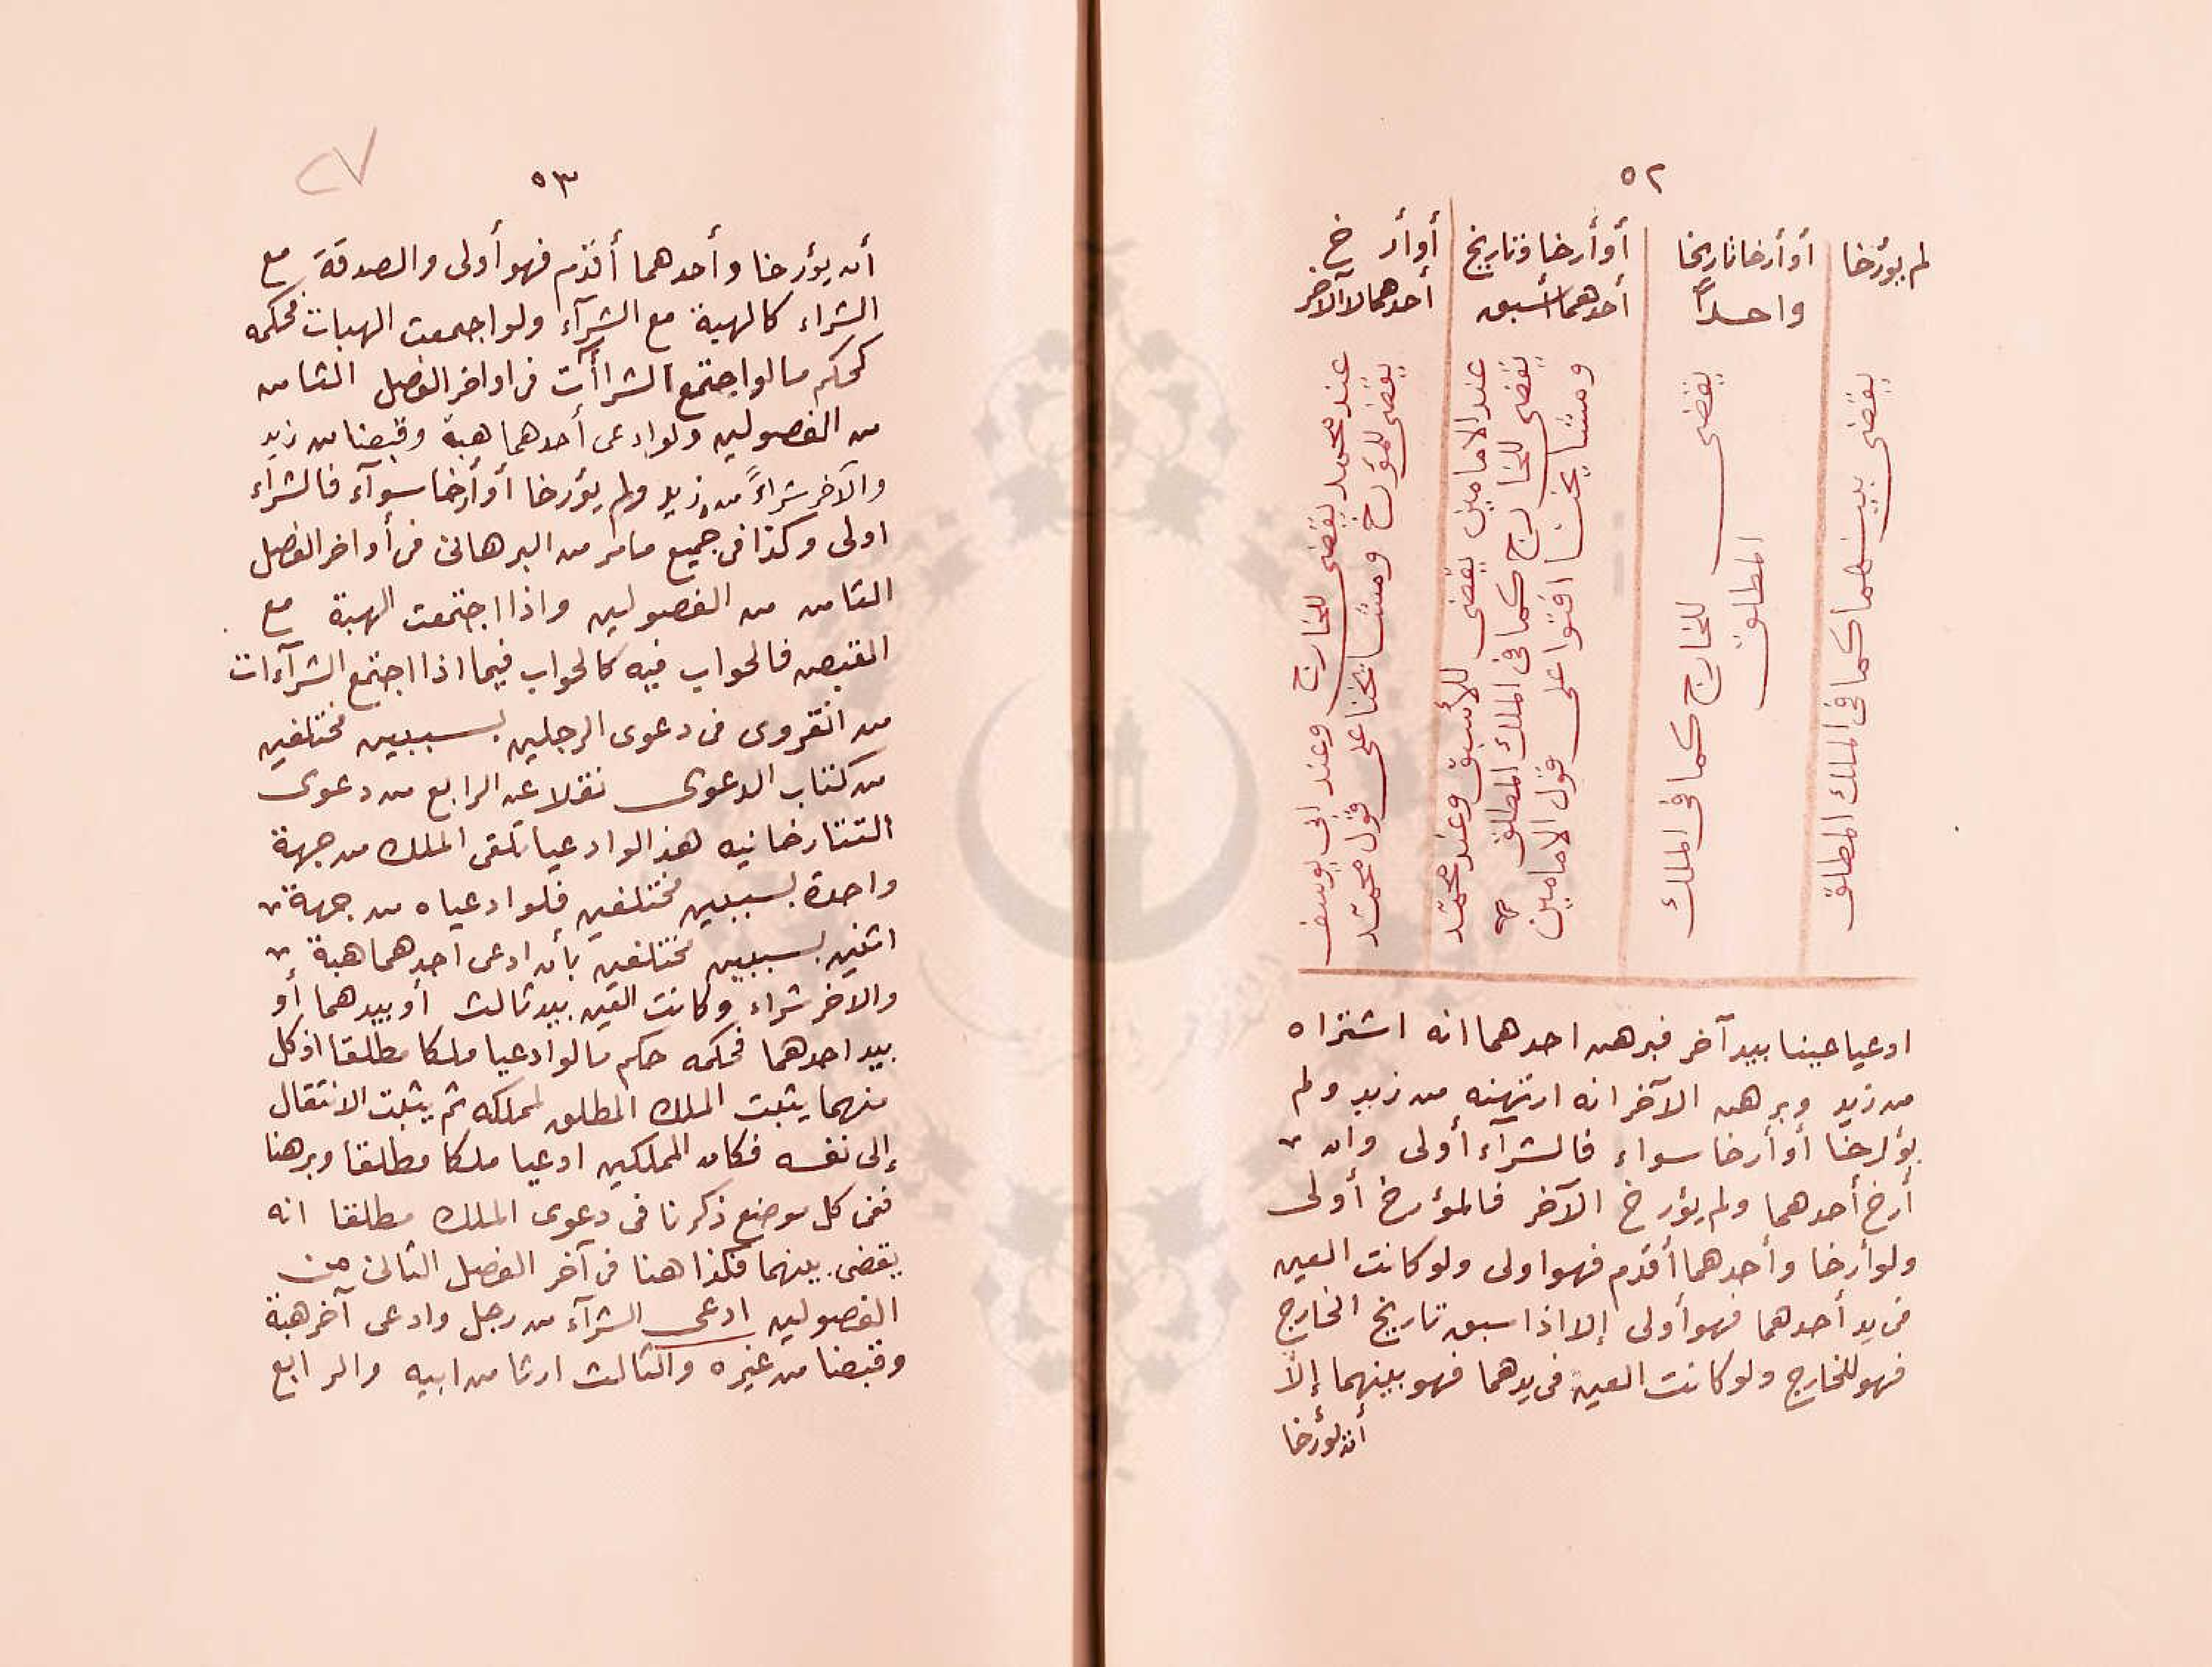 ٥٢
لم يؤرخا
أو أرخا تاريخا
واحداً
أو أرخا وتاريخ
أحدهما أسبق
أو أرخ
أحدهما لا الآخر
يقضى بينهما كما فى الملك المطلق
يقضى للخارج كما فى الملك
المطلق
عند الامامين يقضى للأسبق وعند محمد
يقضى للخارج كما فى الملك المطلق
ومشايخنا افتوا على قول الامامين
عند محمد يقضى للخارج وعند ابى يوسف
يقضى للمؤرخ ومشايخنا على قول محمد
ادعيا عينا بيد آخر فبرهن احدهما انه اشتراه
من زيد وبرهن الآخر انه ارتهنه من زيد ولم
يؤرخا أو أرخا سواء فالشرآء أولى وان
أرخ أحدهما ولم يؤرخ الآخر فالمؤرخ أولى
ولو أرخا وأحدهما أقدم فهو اولى ولو كانت العين
فى يد أحدهما فهو أولى إلا اذا سبق تاريخ الخارج
فهو للخارج ولو كانت العين فى يدهما فهو بينهما إلاّ
أن يؤرخا
٥٣
٢٧
أن يؤرخا وأحدهما أقدم فهو أولى والصدقة مع
الشراء كالهبة مع الشرآء ولو اجمعت الهبات فحكمه
كحكم ما لو اجتمع الشراآت فى اواخر الفصل الثامن
من الفصولين ولو ادعى أحدهما هبة وقبضا من زيد
والآخر شراءً من زيد ولم يؤرخا أو أرخا سوآء فالشراء
اولى وكذا فى جميع ما مر من البرهان فى أواخر الفصل
الثامن من الفصولين واذا اجتمعت الهبة مع
القبض فالجواب فيه كالجواب فيما اذا اجتمع الشرآءات
من انقروى فى دعوى الرجلين بسببين مختلفين
من كتاب الدعوى نقلا عن الرابع من دعوى
التتارخانيه هذا لو ادعيا تلقى الملك من جهة
واحدة بسببين مختلفين فلو ادعياه من جهة
اثنين بسببين مختلفين بأن ادعى احدهما هبة
والآخر شراء وكانت العين بيد ثالث أو بيدهما أو
بيد احدهما فحكمه حكم ما لو ادعيا ملكا مطلقا اذ كل
منهما يثبت الملك المطلق لمملكه ثم يثبت الانتقال
إلى نفسه فكان المملكين ادعيا ملكا مطلقا وبرهنا
ففى كل موضع ذكرنا فى دعوى الملك مطلقا انه
يقضى بينهما فكذا هنا فى آخر الفصل الثانى من
الفصولين ادعى الشرآء من رجل وادعى آخر هبة
وقبضا من غيره والثالث ارثا من ابيه والرابع